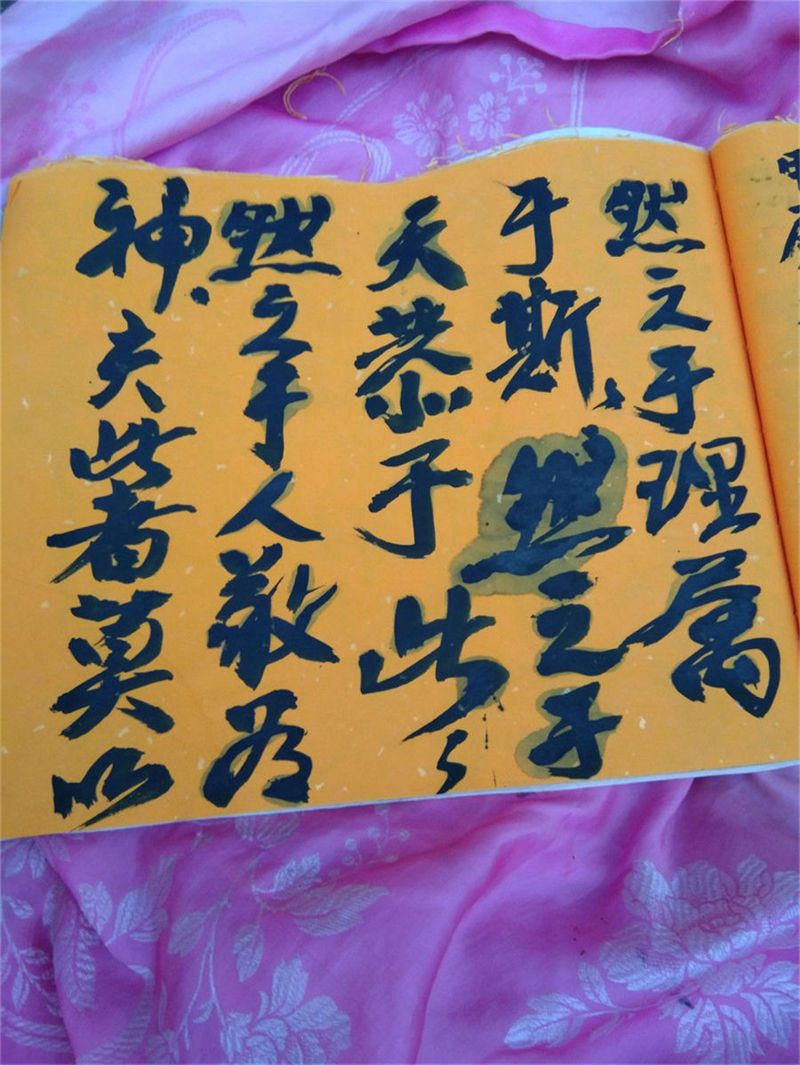 然之于理万
于斯、然之于
天恭于此、
然之于人敬为
神、夫此者莫以